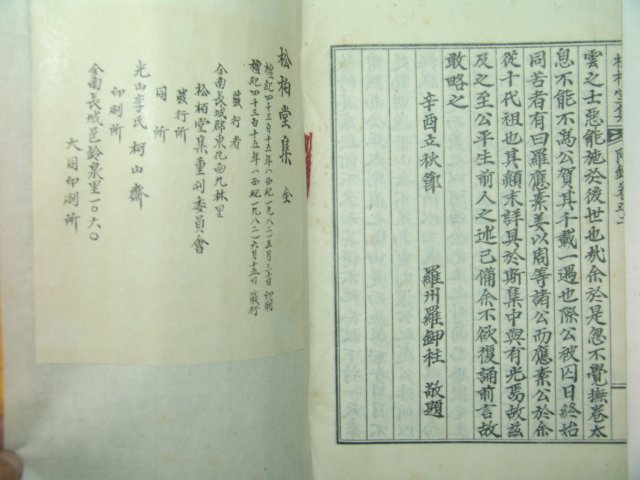 雲之士惡能施於後世也哉余於是忽不覺撫卷太
息不能不爲公賀其千載一遇也際公被囚日終始
同苦者有曰羅應素姜以周等諸公而應素公於余
從十代祖也其顚末詳具於斯集中與有光焉故玆
及之至公平生前人之述已備余不欲復誦前言故
敢略之
辛酉立秋節
羅州羅鉀柱 敬題
松栢堂集 全
檀紀四三一五年(西紀一九八二)五月三十日 印刷
檀紀四三一五年(西紀一九八二)六月十五日 發行
發行者
全南長城郡東化面九林里
松栢堂集重刊委員會
發行所
同所
光山李氏 柯山齋
印刷所
全南長城邑鈴泉里一0六0
大同印刷所